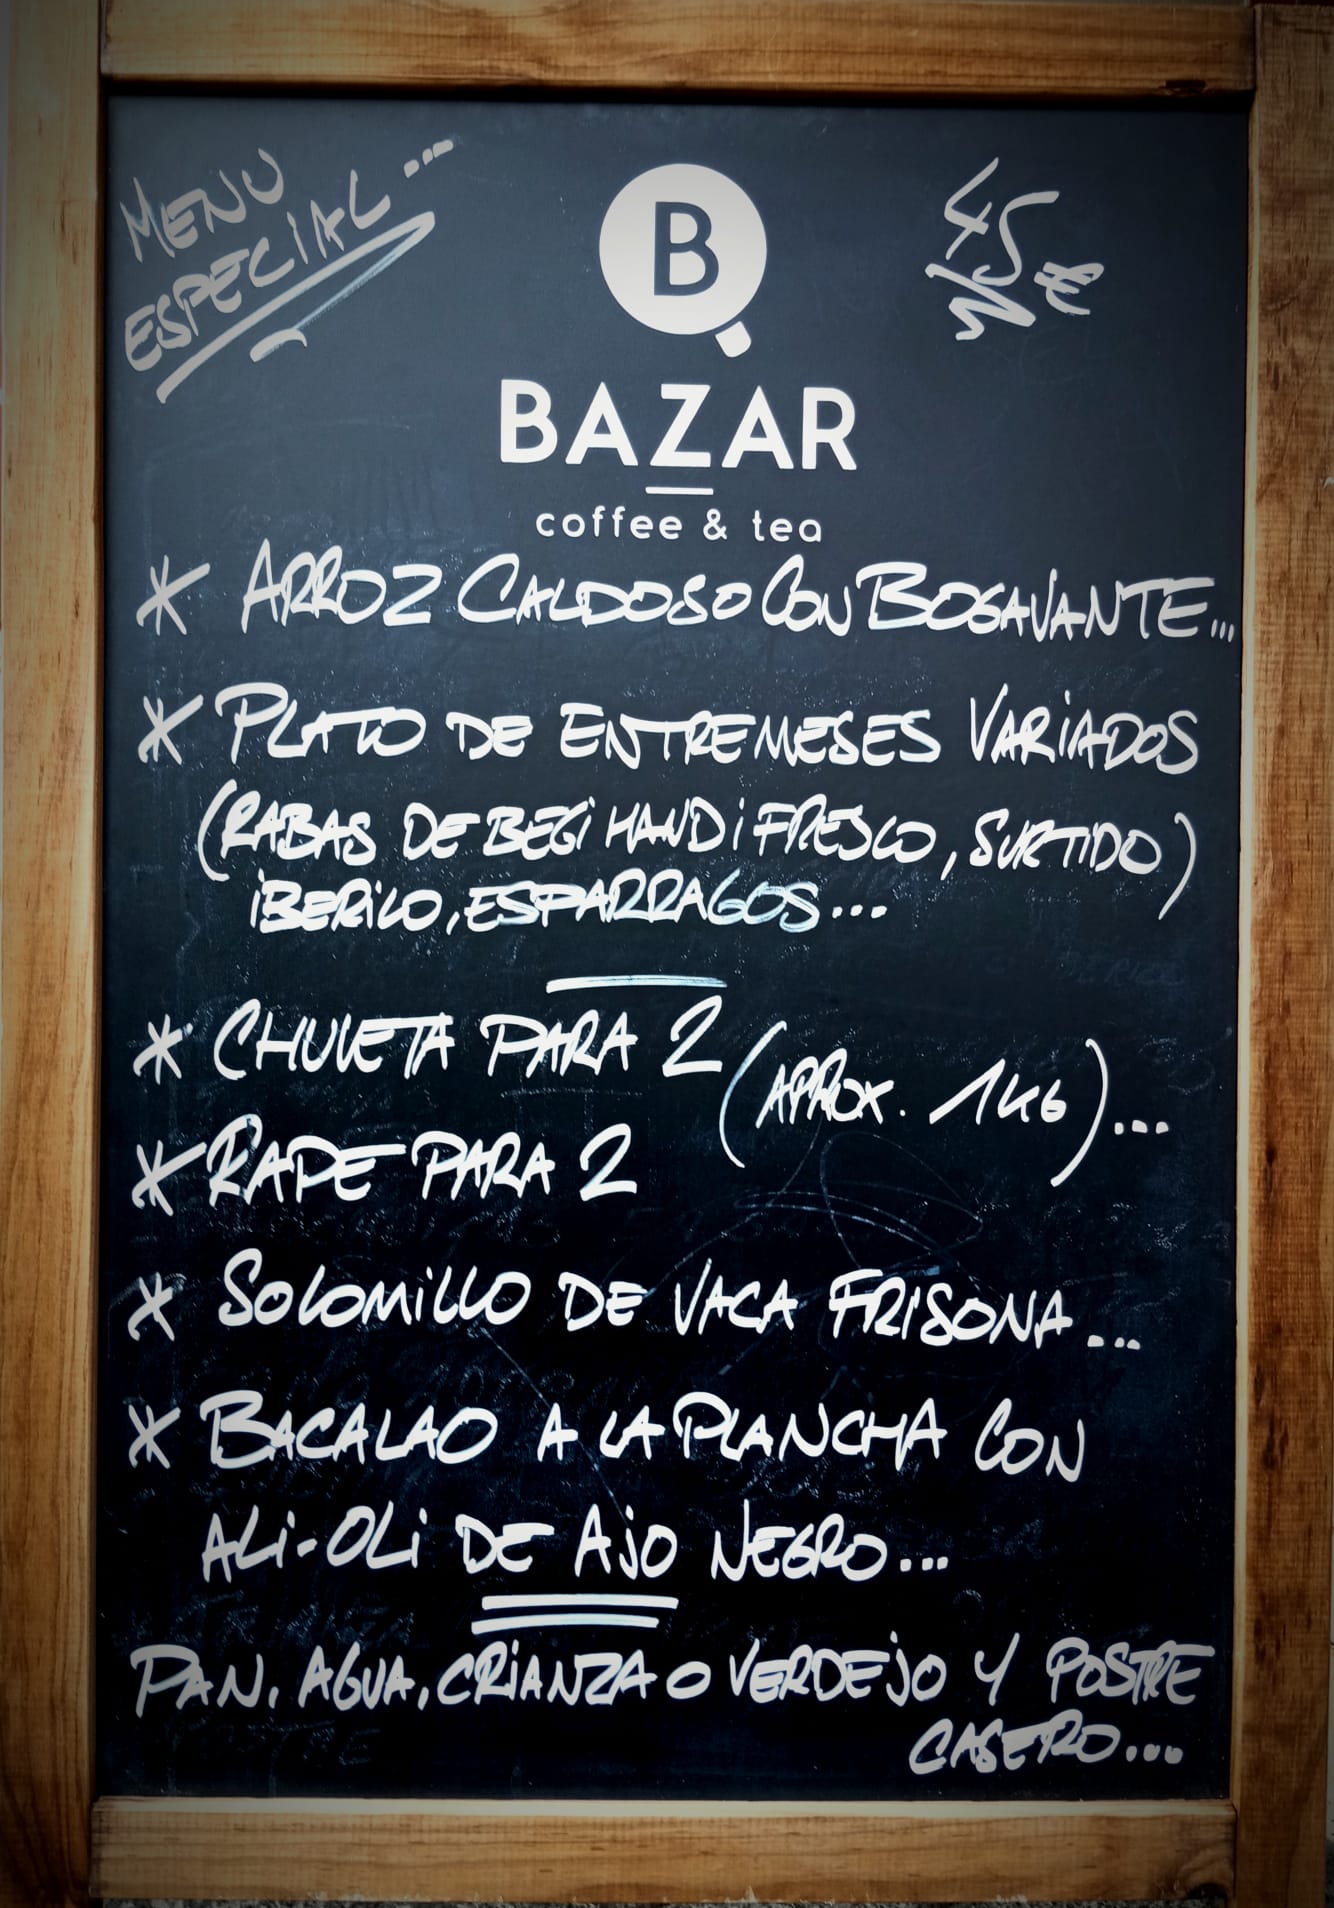 MENU
ESPECIAL...
45€
B
BAZAR
coffee & tea
* ARROZ CALDOSO CON BOGAVANTE...
* PLATO DE ENTREMESES VARIADOS
(RABAS DE BEGIHANDI FRESCO, SURTIDO)
IBERICO, ESPARRAGOS...
* CHULETA PARA 2 (APROX. 1KG)...
* RAPE PARA 2
* SOLOMILLO DE VACA FRISONA...
* BACALAO A LA PLANCHA CON
ALI-OLI DE AJO NEGRO...
PAN, AGUA, CRIANZA O VERDEJO Y POSTRE
CASERO...